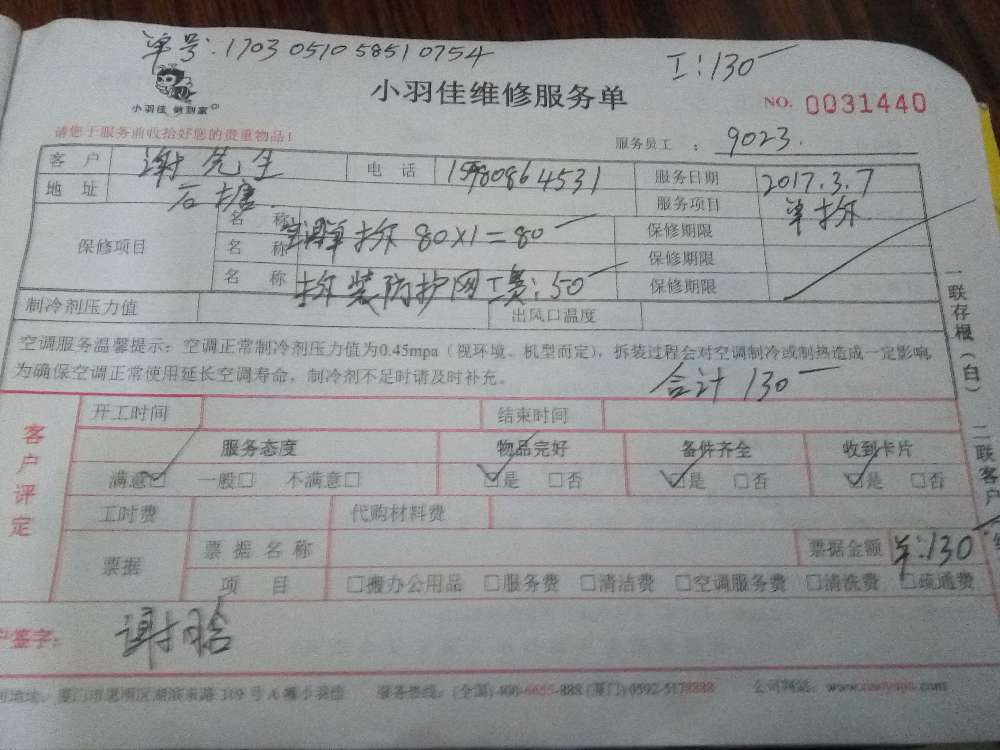 单号:170305105851 0754
工:130
小羽佳 做到家
小羽佳维修服务单
NO. 0031440
请您于服务前收拾好您的贵重物品！
服务员工 : 9023.
客户 谢先生 电话 服务日期 2017.3.7
地址 石塘 服务项目 单拆
保修项目 名称 空调单拆 80×1=80 保修期限
名称 保修期限
名称 拆装防护网工费:50 保修期限
制冷剂压力值 出风口温度
空调服务温馨提示：空调正常制冷剂压力值为0.45mpa（视环境、机型而定），拆装过程会对空调制冷或制热造成一定影响,
为确保空调正常使用延长空调寿命，制冷剂不足时请及时补充。
合计 130
一联存根（白） 二联客户
客户评定
开工时间 结束时间
服务态度 物品完好 备件齐全 收到卡片
满意□ 一般□ 不满意□ □是 □否 □是 □否 □是 □否
工时费 代购材料费
票据 票据名称 票据金额 ¥:130
项目 □搬办公用品 □服务费 □清洁费 □空调服务费 □清洗费 □疏通费
户签字:
服务热线: (全国)400-6655-888 (厦门)0592-5178888
公司网站: